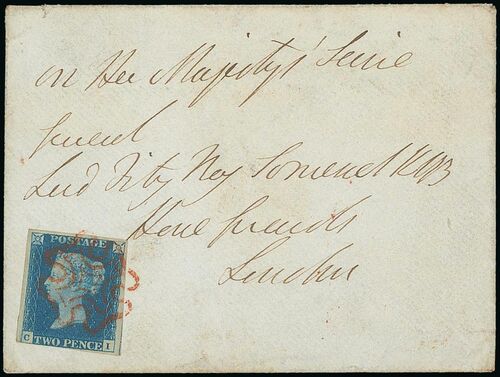 On Her Majesty's Service
General
Lord Fitz Roy Somerset KCB
Horse Guards
London
POSTAGE
C TWO PENCE I